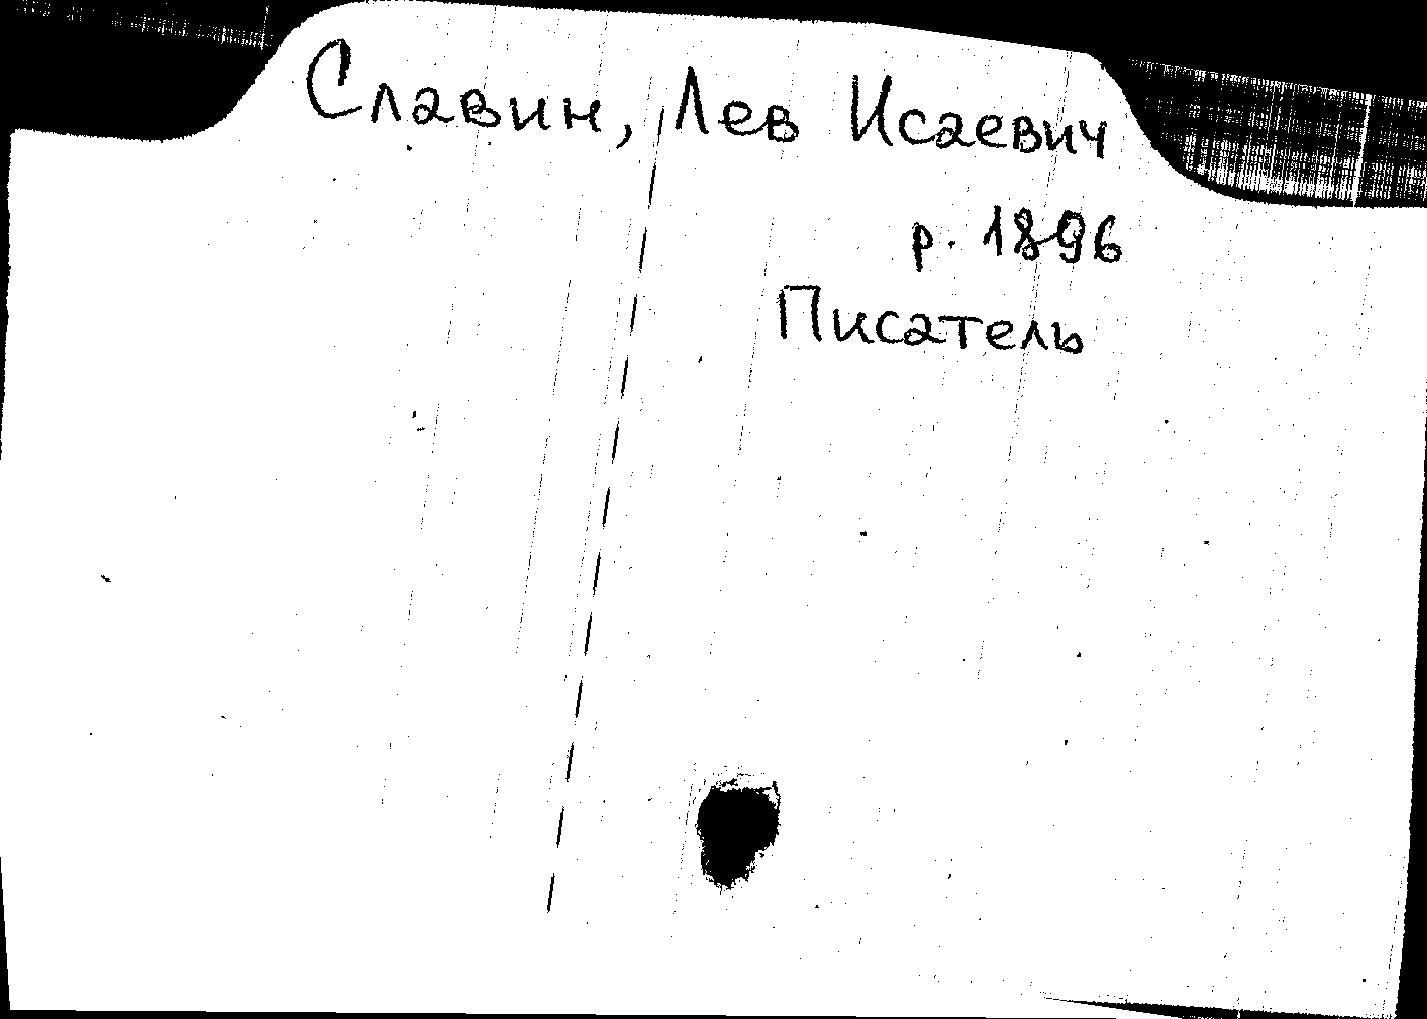 Славин, Лев Исаевич
р. 1896
Писатель